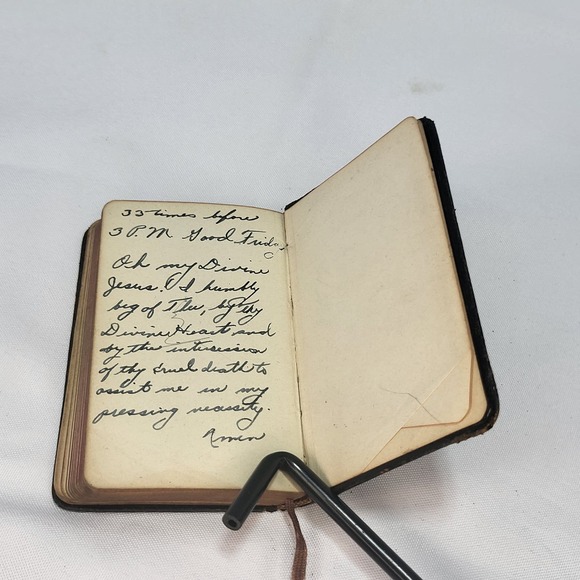 33 times before
3 P.M Good Friday
Oh my Divine
Jesus. I humbly
beg of Thee, by thy
Divine Heart and
by the intersession
of thy cruel death to
assist me in my
pressing necessity.
Amen